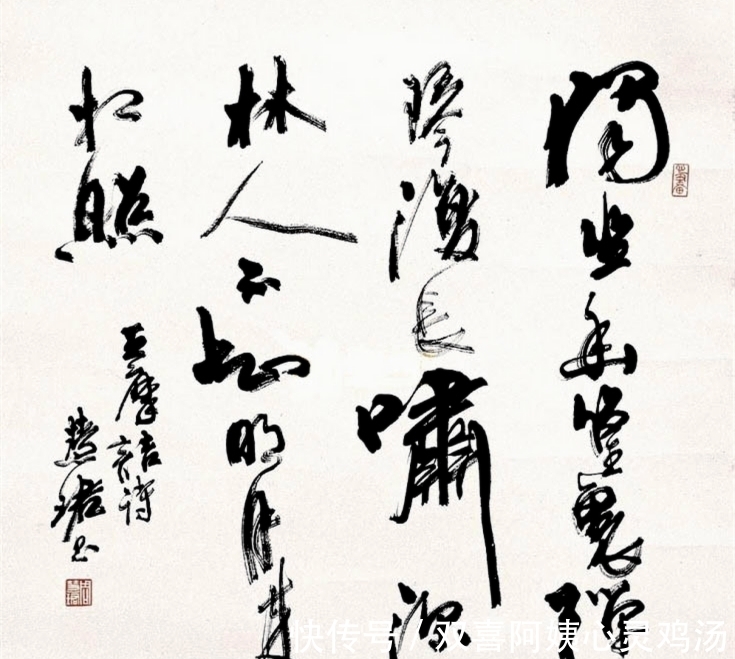 獨坐幽篁裏彈
琴復長嘯深
林人不知明月来
相照
王摩詰詩
慧珺书
快传号 / 双喜阿姨心灵鸡汤